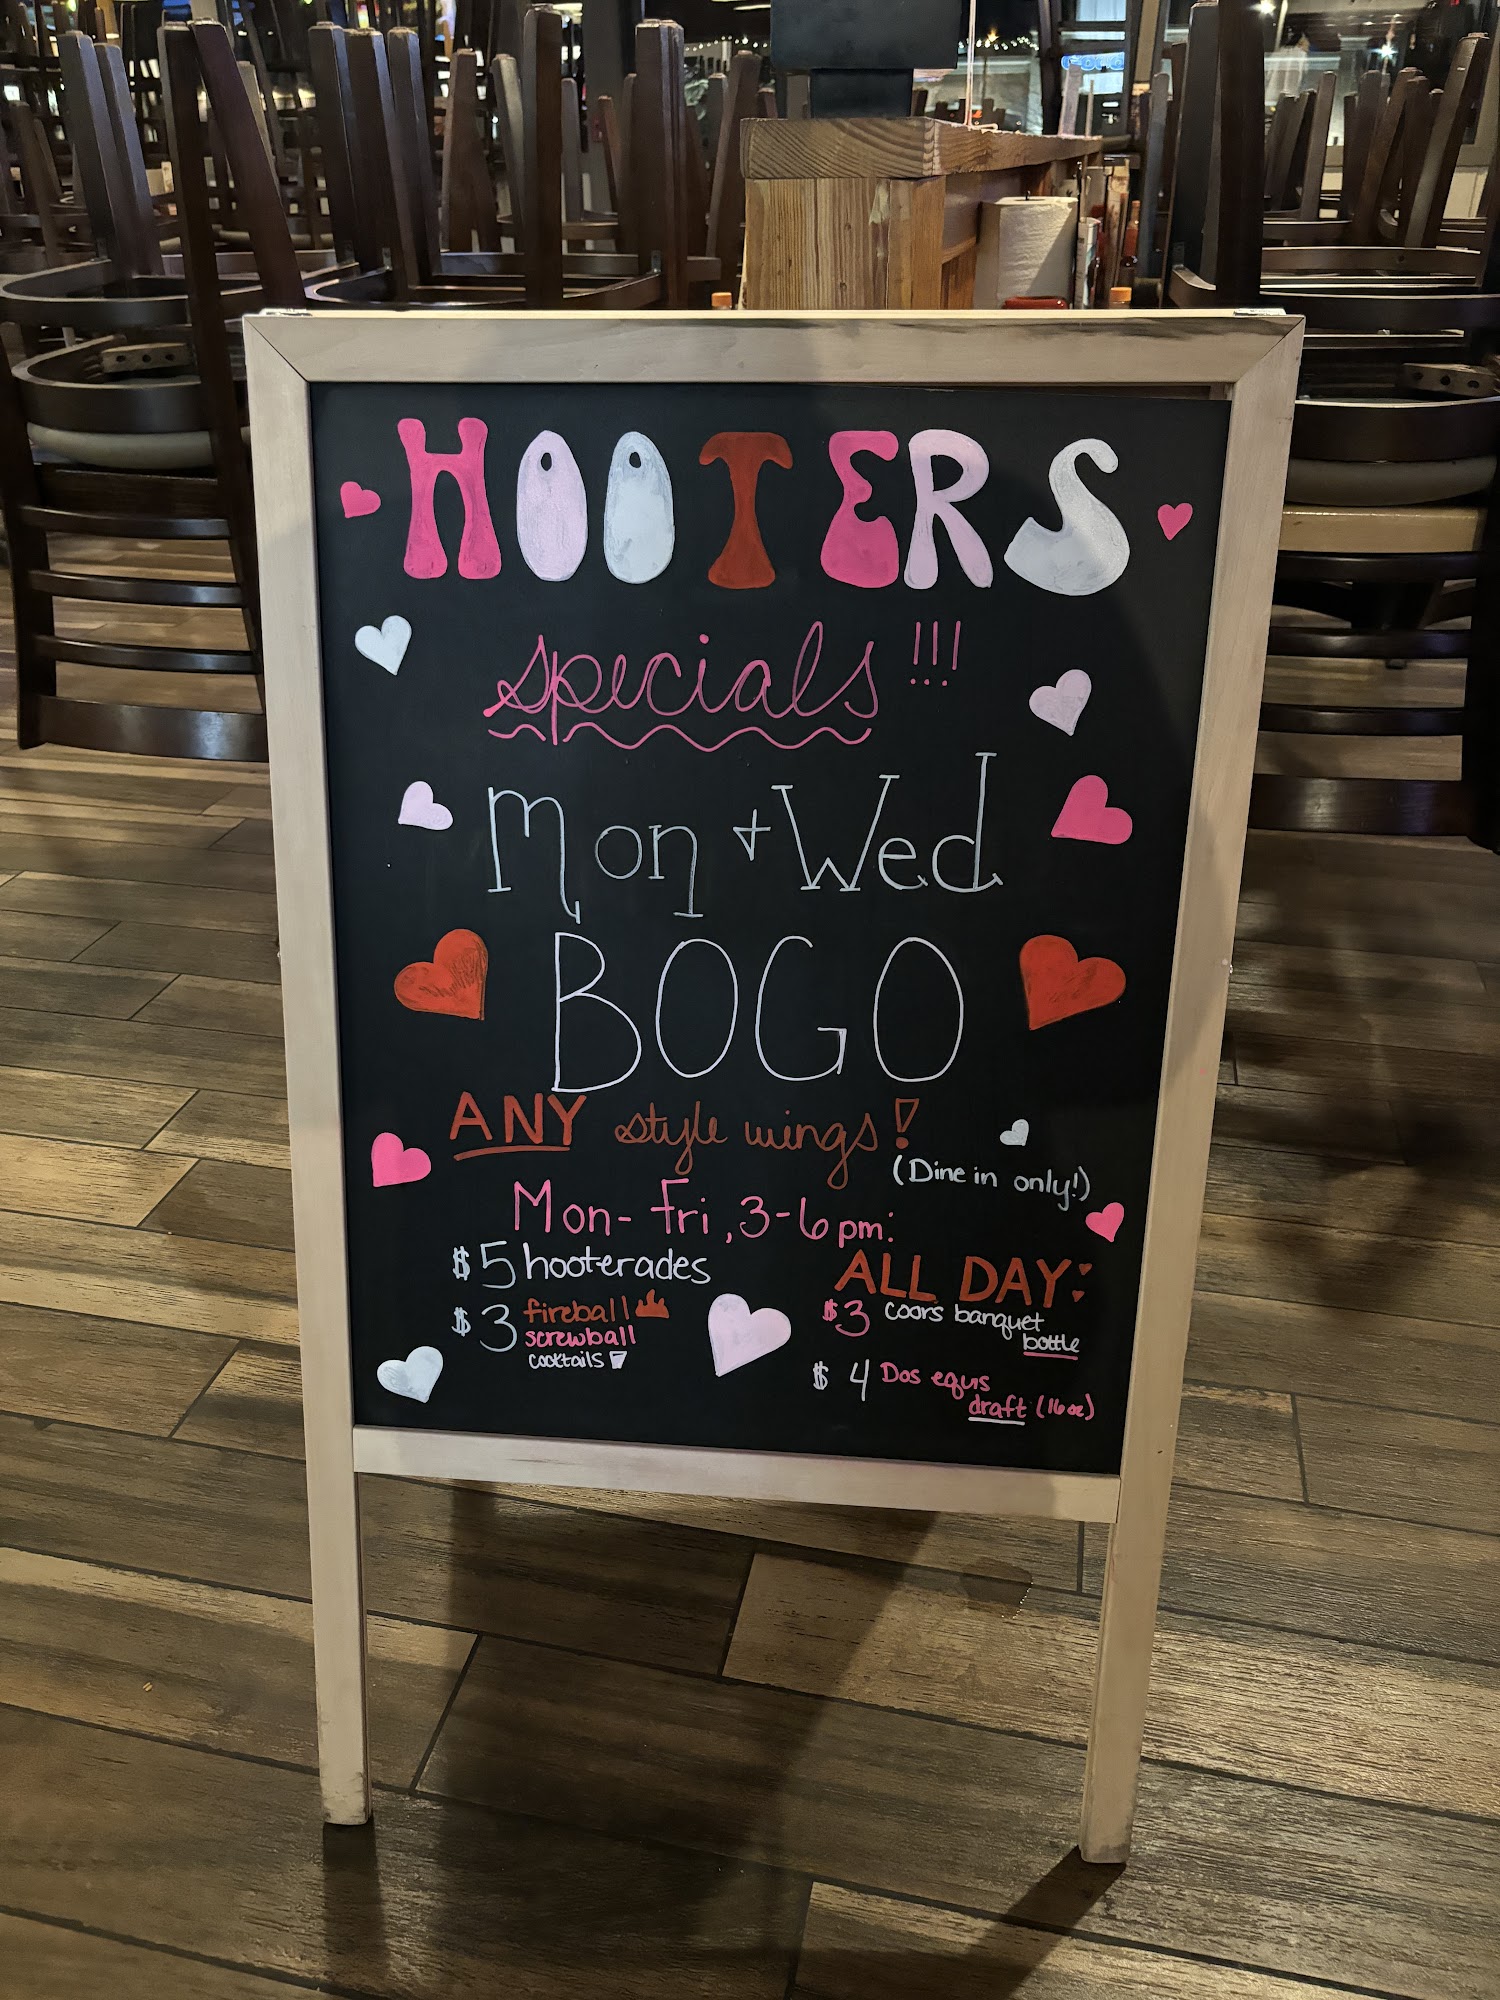 HOOTERS
specials!!!
Mon + Wed
BOGO
ANY style wings!
(Dine in only!)
Mon-Fri, 3-6pm:
$5 hooterades
$3 fireball
screwball
cocktails
ALL DAY:
$3 coors banquet
bottle
$4 Dos equis
draft (16oz)